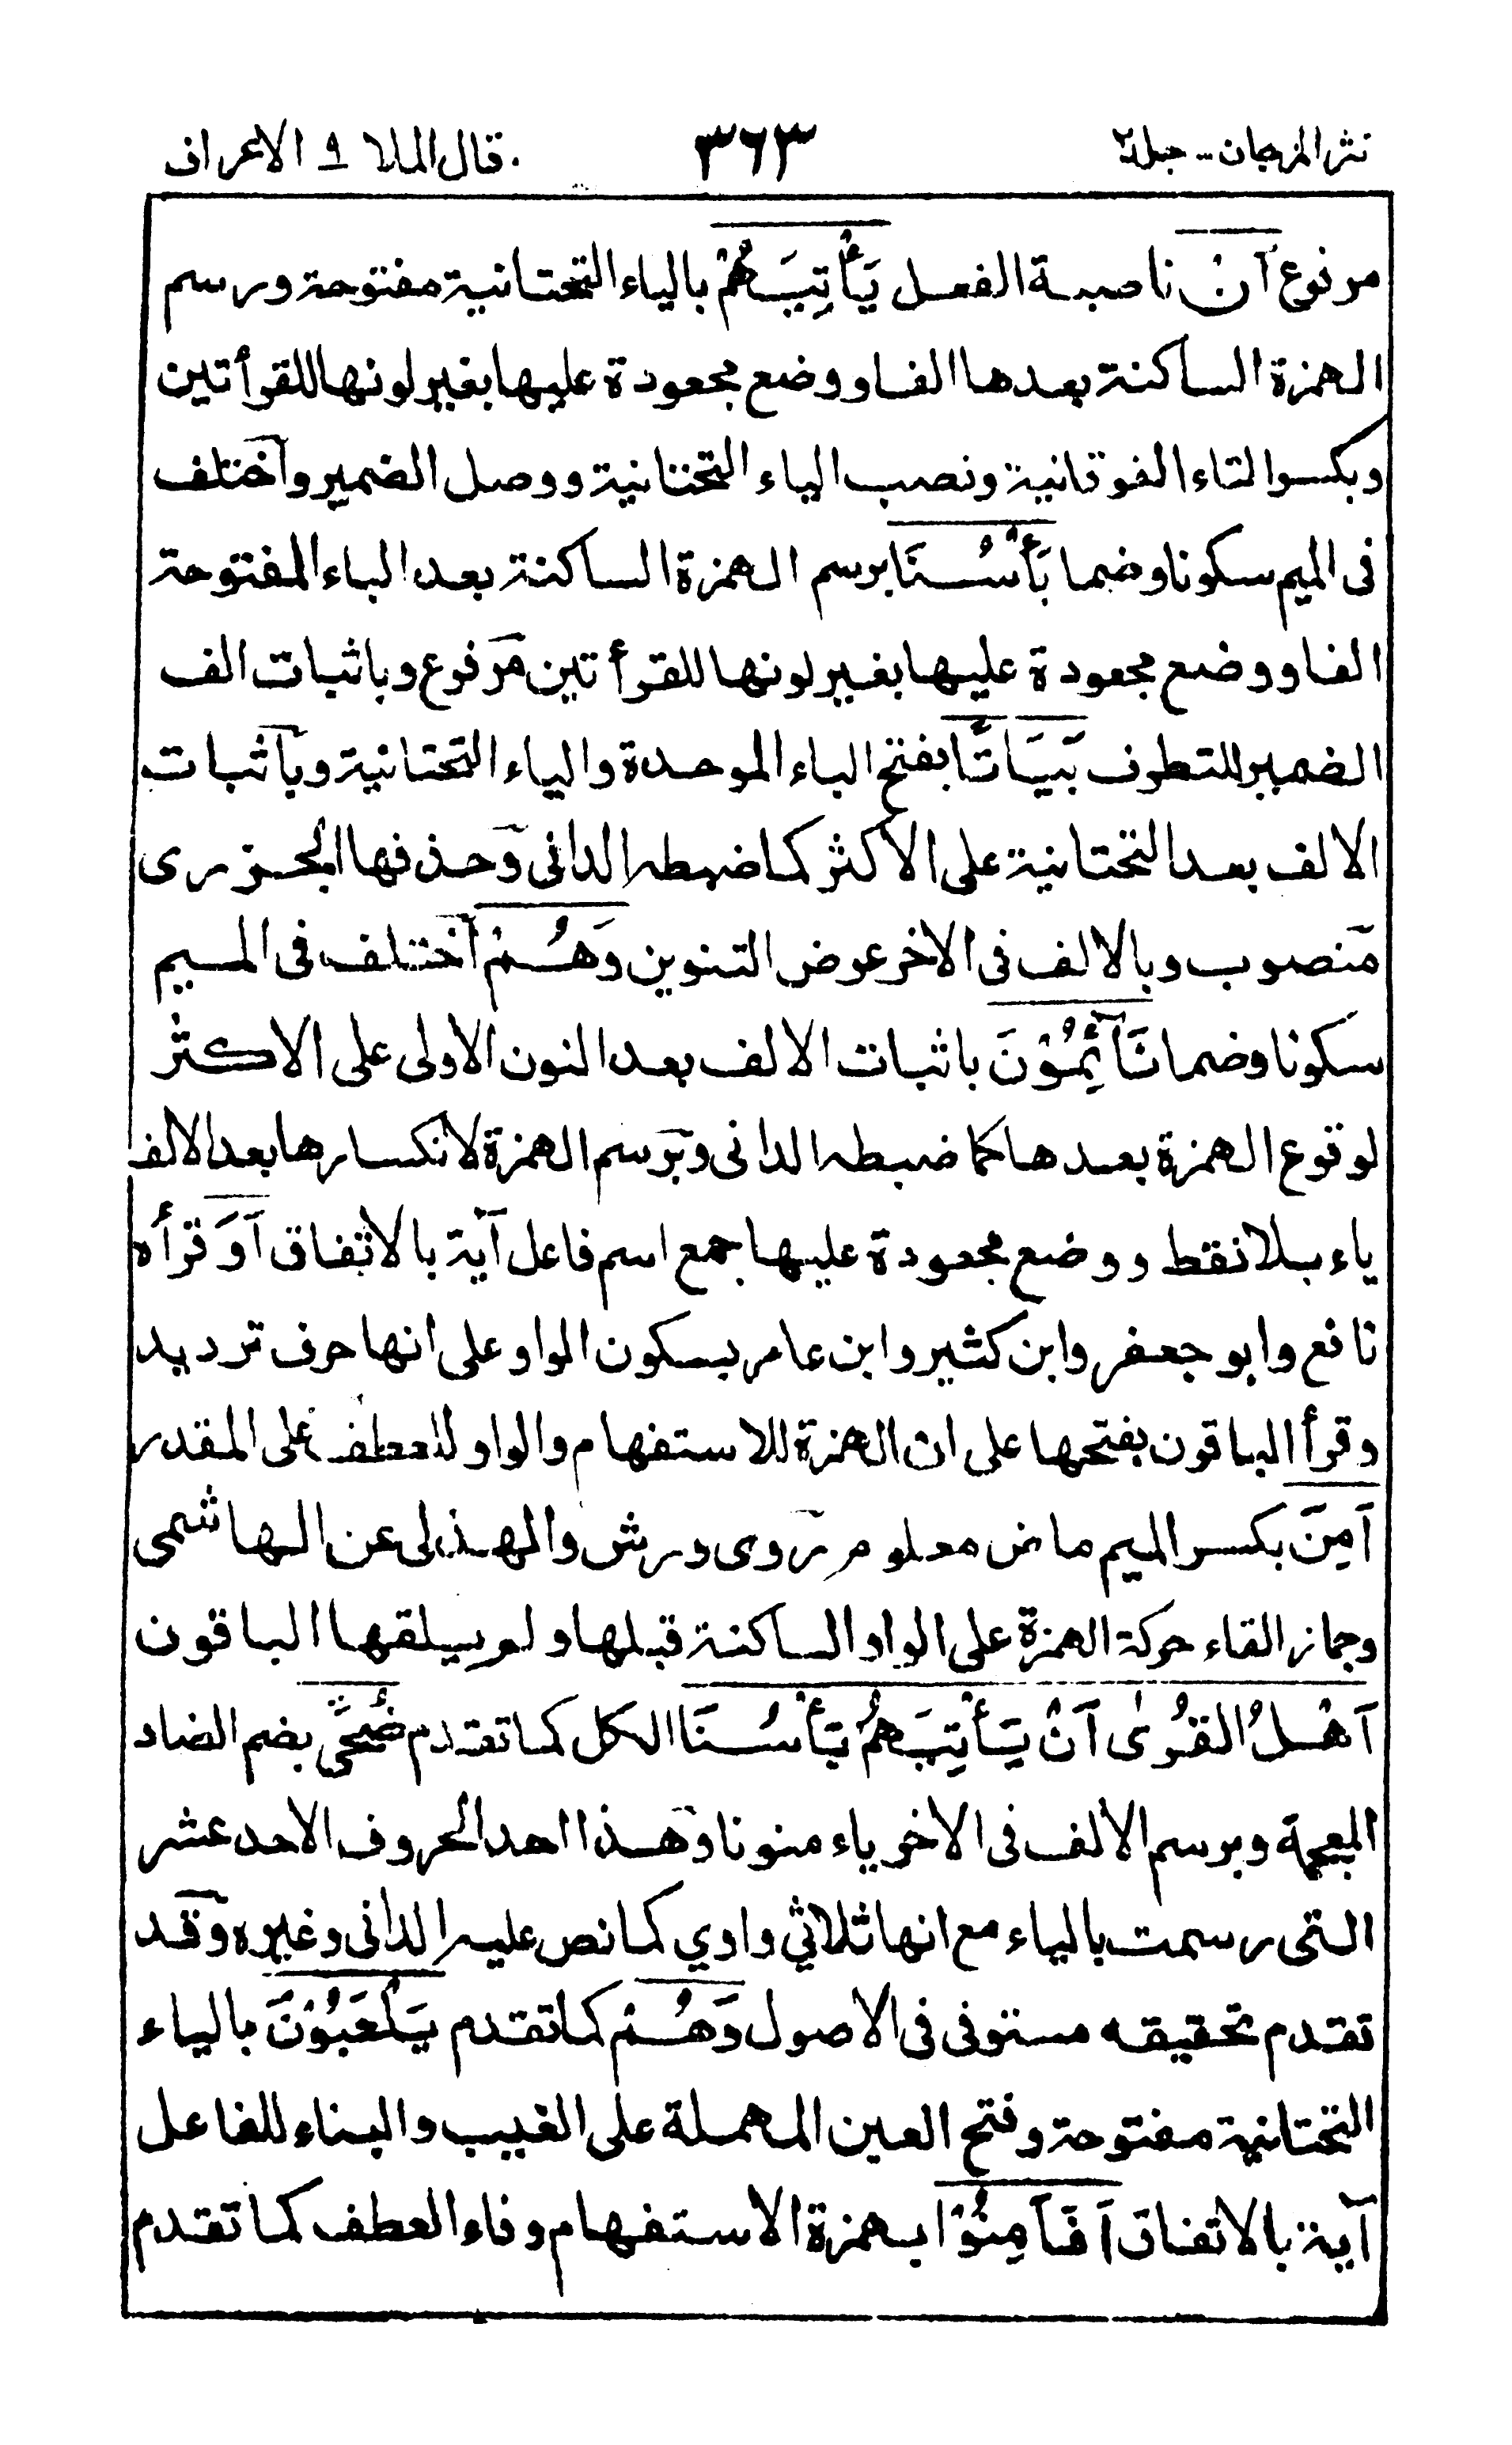 نثر المرجان - جلد٢ ٣٦٣ قال الملا ٩ الاعراف
مرفوع اَنْ ناصبة الفعل يَأْتِيَهُمْ بالياء التحتانية مفتوحة ورسم
الهمزة الساكنة بعدها الفا ووضع مجعودة عليها بغير لونها للقرأتين
وبكسر التاء الفوقانية ونصب الياء التحتانية ووصل الضمير واختلف
فى الميم سكونا وضما بَأْسُنَا برسم الهمزة الساكنة بعد الباء المفتوحة
الفا ووضع مجعودة عليها بغير لونها للقرأتين مرفوع وباثبات الف
الضمير للتطرف بَيَاتًا بفتح الباء الموحدة والياء التحتانية وباثبات
الالف بعد التحتانية على الاكثر كما ضبطه الدانى وحذفها الجزرى
منصوب وبالالف فى الاخر عوض التنوين وَهُمْ اختلف فى الميم
سكونا وضما نَآئِمُوْنَ باثبات الالف بعد النون الاولى على الاكثر
لوقوع الهمزة بعدها كما ضبطه الدانى وبرسم الهمزة لانكسارها بعد الالف
ياء بلا نقط ووضع مجعودة عليها جمع اسم فاعل آية بالاتفاق اَوَ قرأه
نافع وابو جعفر وابن كثير وابن عامر بسكون الواو على انها حرف ترديد
وقرأ الباقون بفتحها على ان الهمزة للاستفهام والواو للعطف على المقدر
اَمِنَ بكسر الميم ماض معلوم روى ورش والهذلى عن الهاشمى
وجماز القاء حركة الهمزة على الواو الساكنة قبلها ولم يلقها الباقون
اَهْلُ الْقُرٰى اَنْ يَأْتِيَهُمْ بَأْسُنَا الكل كما تقدم ضُحًى بضم الضاد
المعجمة وبرسم الالف فى الاخر ياء منونا وهذا احد الحروف الاحد عشر
التى رسمت بالياء مع انها ثلاثي واوي كما نص عليه الدانى وغيره وقد
تقدم تحقيقه مستوفى فى الاصول وَهُمْ كما تقدم يَلْعَبُوْنَ بالياء
التحتانية مفتوحة وفتح العين المهملة على الغيب والبناء للفاعل
آية بالاتفاق اَفَاَمِنُوْا بهمزة الاستفهام وفاء العطف كما تقدم